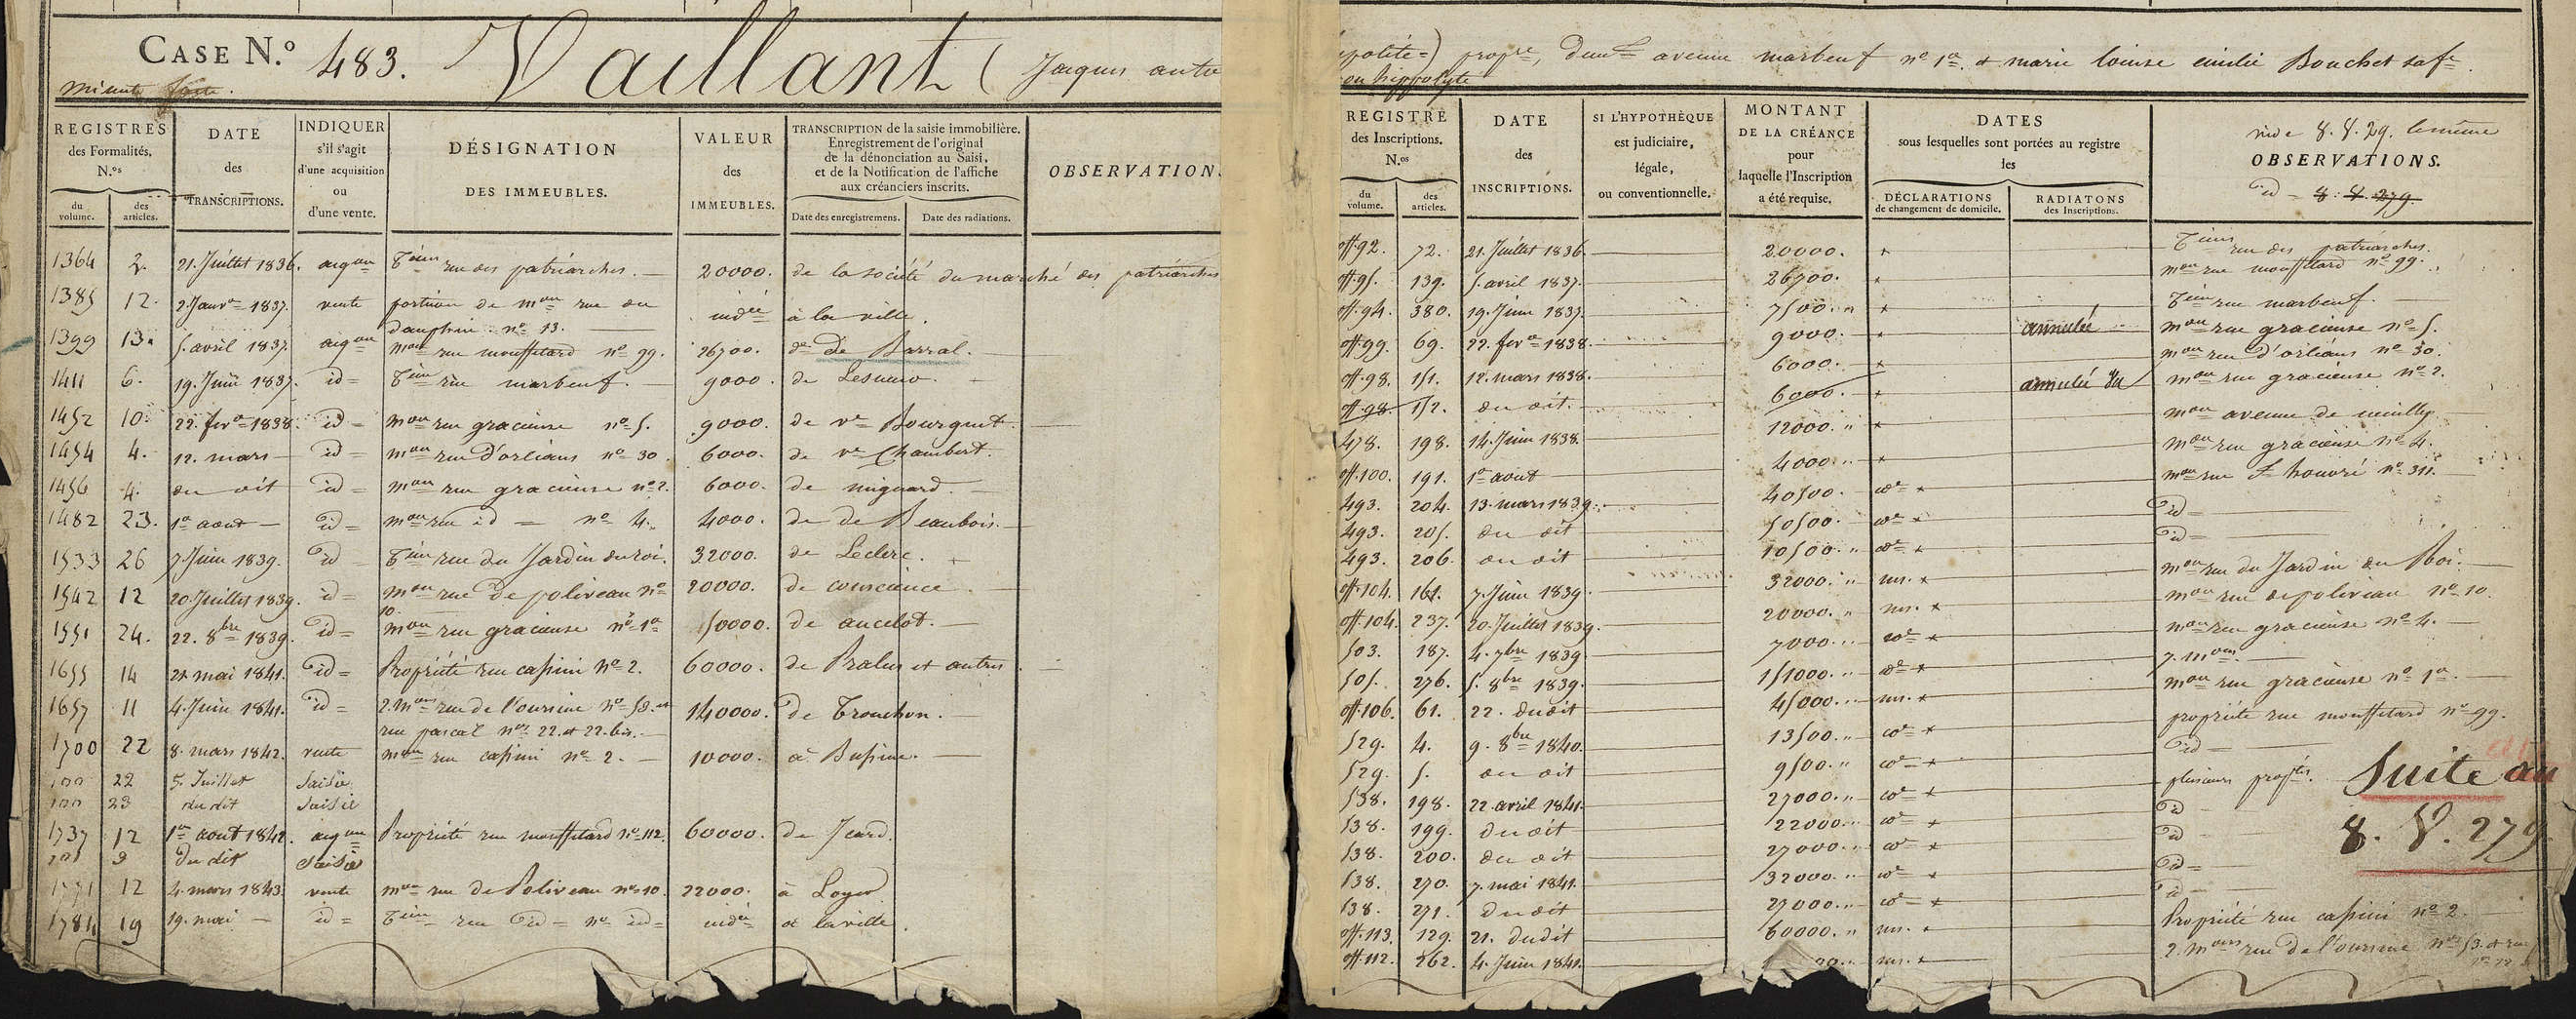 CASE N.º 483. Vaillant ( Jacques anto
minute faite.
REGISTRES des Formalités. N.ºs
du volume. des articles.
DATE des TRANSCRIPTIONS.
INDIQUER s'il s'agit d'une acquisition ou d'une vente.
DÉSIGNATION DES IMMEUBLES.
VALEUR des IMMEUBLES.
TRANSCRIPTION de la saisie immobilière. Enregistrement de l'original de la dénonciation au Saisi, et de la Notification de l'affiche aux créanciers inscrits.
Date des enregistremens. Date des radiations.
OBSERVATION
1364 2. 21. Juillet 1836. aiqon Tein rue des patriarches. 20000. de la société du marché des patriarches
1385 12. 2 Janvr 1837. vente portion de mon rue du indée à la ville.
dauphin nº 13.
1399 13. 5. avril 1837. aiqon mon rue mouffetard nº 99. 26700. de De Barral.
1411 6. 19. Juin 1837. id= Tein rue marbeuf. 9000. de Lesueur.
1452 10. 22. fevr 1838. id= mon rue gracieuse nº 5. 9000. de ve Bourguet.
1454 4. 12. mars id= mon rue d'orléans nº 30. 6000. de ve Chambert.
1456 4. du dit id= mon rue gracieuse nº 2. 6000. de mignard.
1482 23. 1er aout id= mon rue id= nº 4. 4000. de de Beaubois.
1533 26 7. Juin 1839. id Tein rue du Jardin du roi. 32000. de Leclerc.
1542 12 20. Juillet 1839. id= mon rue de poliveau nº 20000. de conscience.
10.
1551 24. 22. 8bre 1839. id= mon rue gracieuse nº 1er 50000. de ancelot.
1655 14 21 mai 1841. id= Propriété rue cassini Nº 2. 60000. de Pralus et autres.
1657 11 4. Juin 1841. id= 2. mons rue de l'oursine Nº 53. et 140000. de Trouchon.
rue pascal nos 22. et 22. bis.
1700 22 8. mars 1842. vente mon rue cassini nº 2. 10000. à
100 22 5. Juillet Saisie
100 23 du dit Saisie
1737 12 1er aout 1842. aiqon Propriété rue mouffetard nº 112. 60000. de Icard.
101 9 du dit Saisie
1771 12 4. mars 1843. vente mon rue de Poliveau nº 10. 22000. à Loyer
1781 19 19. mai id= Tein rue id= nº id= indée à la ville.
ypolite=) propre, demt avenue marbeuf nº 1er. et marie louise emilie Bouchet safe.
ou hippolyte
REGISTRE des Inscriptions. N.ºs
du volume. des articles.
DATE des INSCRIPTIONS.
SI L'HYPOTHÈQUE est judiciaire, légale, ou conventionnelle.
MONTANT DE LA CRÉANCE pour laquelle l'Inscription a été requise.
DATES sous lesquelles sont portées au registre les
DÉCLARATIONS de changement de domicile. RADIATONS des Inscriptions.
vide 8. V. 29. le même
OBSERVATIONS.
id= 8. V. 279.
off. 92. 72. 21. Juillet 1836. 20000. Tein rue des patriarches.
off. 95. 139. 5. avril 1837. 26700. mon rue mouffetard nº 99.
off. 94. 380. 19. Juin 1837. 7500. Tein rue marbeuf.
off. 99. 69. 22. fevr 1838. 9000. annulée mon rue gracieuse nº 5.
off. 98. 151. 12. mars 1838. 6000. mon rue d'orléans nº 30.
off. 98. 152. du dit. 6000. annulée mon rue gracieuse nº 2.
478. 198. 14. Juin 1838. 12000. mon avenue de neuilly.
off. 100. 191. 1er aout 4000. mon rue gracieuse nº 4.
493. 204. 13. mars 1839. 40500. coe mon rue St honoré nº 311.
493. 205. du dit 50500. coe id=
493. 206. du dit 10500. coe id=
off. 104. 161. 7. Juin 1839. 32000. ns. mon rue du Jardin du Roi.
off. 104. 237. 20. Juillet 1839. 20000. ns. mon rue de poliveau nº 10.
503. 187. 4. 7bre 1839. 7000. coe mon rue gracieuse nº 4.
505. 276. 5. 8bre 1839. 151000. coe 7. mons
off. 106. 61. 22. du dit 45000. ns. mon rue gracieuse nº 1er.
529. 4. 9. 8bre 1840. 13500. coe propriété rue mouffetard nº 99.
529. 5. du dit 9500. coe id=
538. 198. 22. avril 1841. 27000. coe plusieurs proptés.
538. 199. du dit 22000. coe id
538. 200. du dit 27000. coe id
538. 270. 7. mai 1841. 32000. coe id=
538. 271. du dit 27000. coe id
off. 113. 129. 21. du dit 60000. ns. Propriété rue cassini nº 2.
off. 112. 262. 4. Juin 1841. ns. 2. mons rue de l'oursine nos 53. et rue
Suite au
8. V. 279.